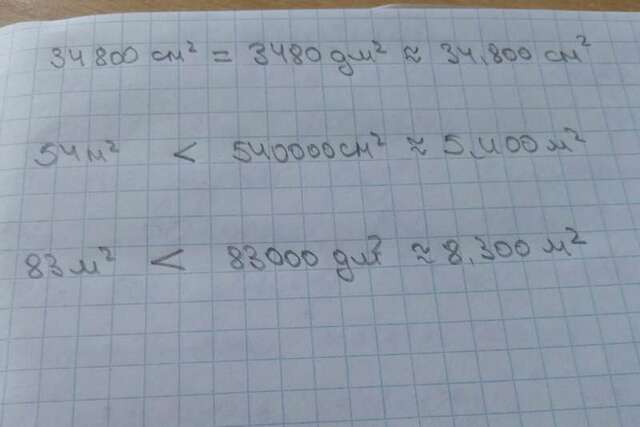 34800 см² = 3480 дм² ≈ 34.800 см²
54м² < 540000см² ≈ 5.400 м²
83м² < 83000 дм² ≈ 8.300 м²